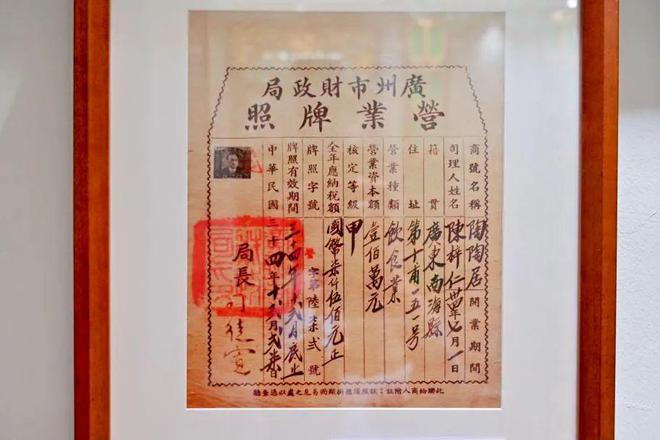 廣州市財政局
營業牌照
商號名稱 陶陶居 開業期間
司理人姓名 陳梓仁 卅四年七月一日
籍貫 廣東南海縣
住址
營業種類 飲食業
營業資本額 壹佰萬元
核定等級 甲
全年應納稅額 國幣柒仟伍佰元正
牌照字號 字第 陸柒弍 號
牌照有效期間 三十四年十弍月底止
中華民國三十四年十弍月
局長